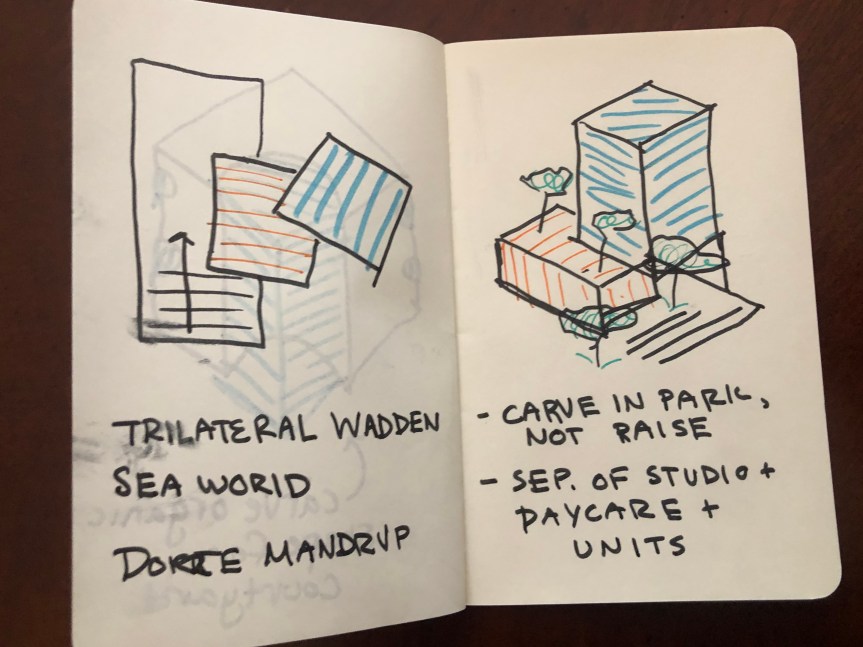 TRILATERAL WADDEN
SEA WORLD
DORTE MANDRUP
- CARVE IN PARK,
NOT RAISE
- SEP. OF STUDIO +
DAYCARE +
UNITS
carve organic
courtyard